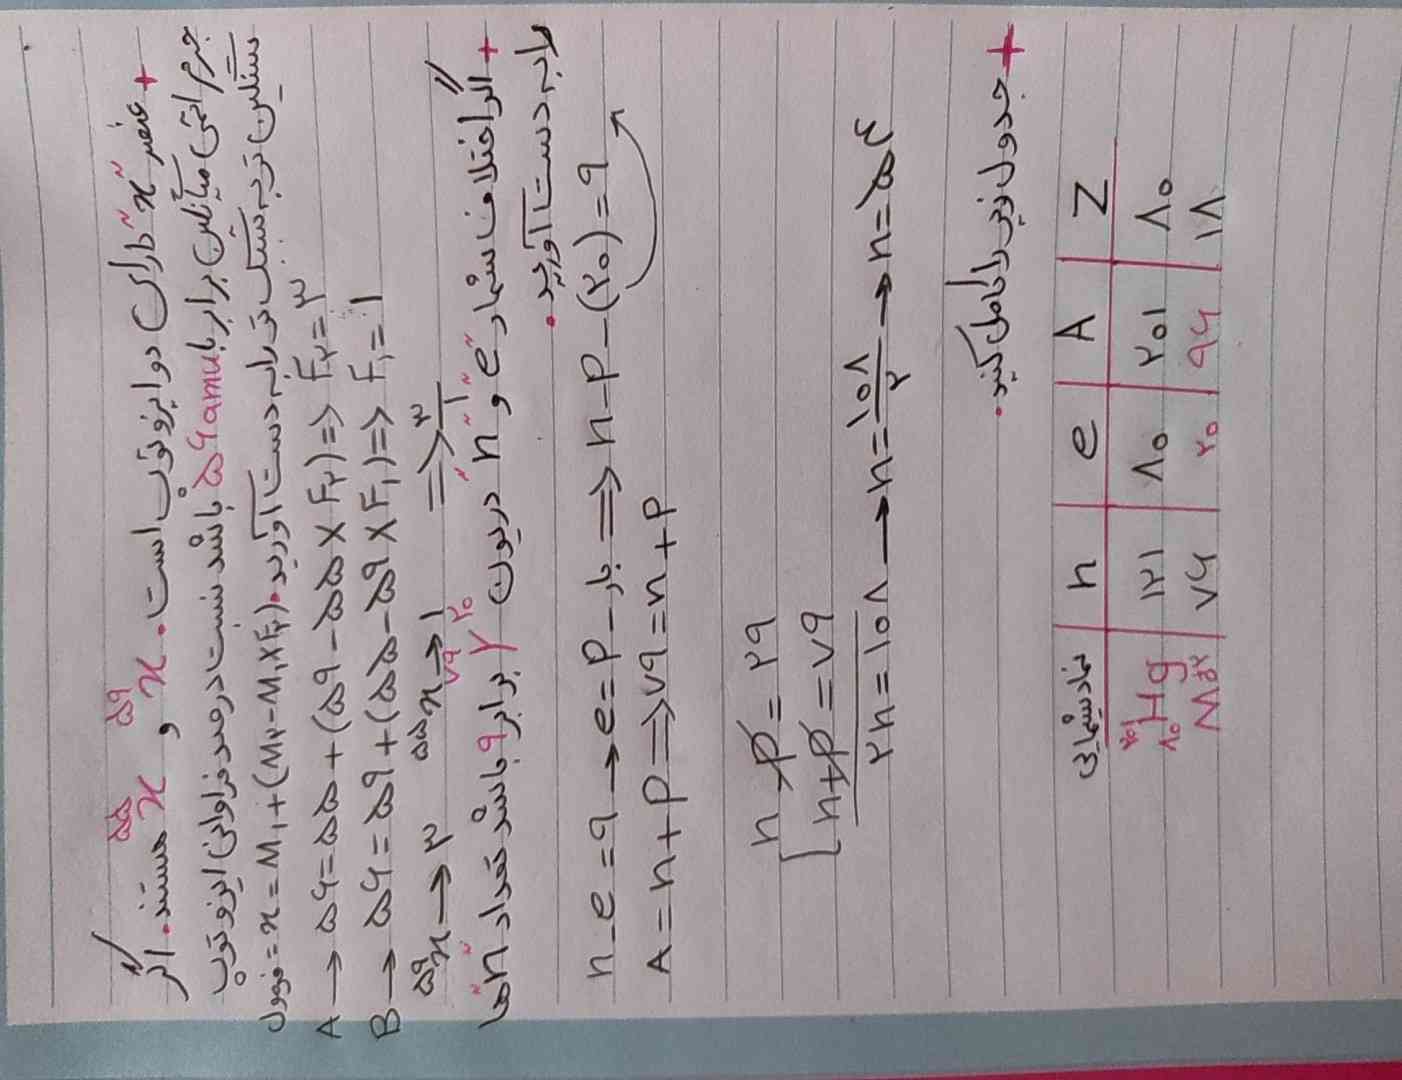 + عنصر "x" دارای دو ایزوتوپ است. ⁵⁵x و ⁵⁹x هستند. اگر
جرم اتمی میانگین برابر با ۵۶amu باشد نسبت درصد فراوانی ایزوتوپ
سنگین تر به سبک تر را به دست آورید. (فرمول = x = M₁ + (M₂ - M₁ × F₂
A → ۵۶ = ۵۵ + (۵۹ - ۵۵ × F₂) ⇒ F₂ = ۳
B → ۵۶ = ۵۹ + (۵۵ - ۵۹ × F₁) ⇒ F₁ = ۱
⁵⁹x → ۳ ⁵⁵x → ۱ ⇒ ۳/۱
+ اگر اختلاف شمار "e" و "n" در یون ⁷⁹Y²⁰ برابر ۹ باشد تعداد "n" ها
را به دست آورید.
n - e = ۹ → e = P - بار ⇒ n - P - (۲۰) = ۹
A = n + P ⇒ ۷۹ = n + P
n - P = ۲۹
n + P = ۷۹
۲n = ۱۰۸ → n = ۱۰۸/۲ → n = ۵۴
+ جدول زیر را کامل کنید.
نماد شیمیایی | n | e | A | Z
²⁰¹₈₀Hg | ۱۲۱ | ۸۰ | ۲۰۱ | ۸۰
۷۶ | ۲۰ | ۹۴ | ۱۸